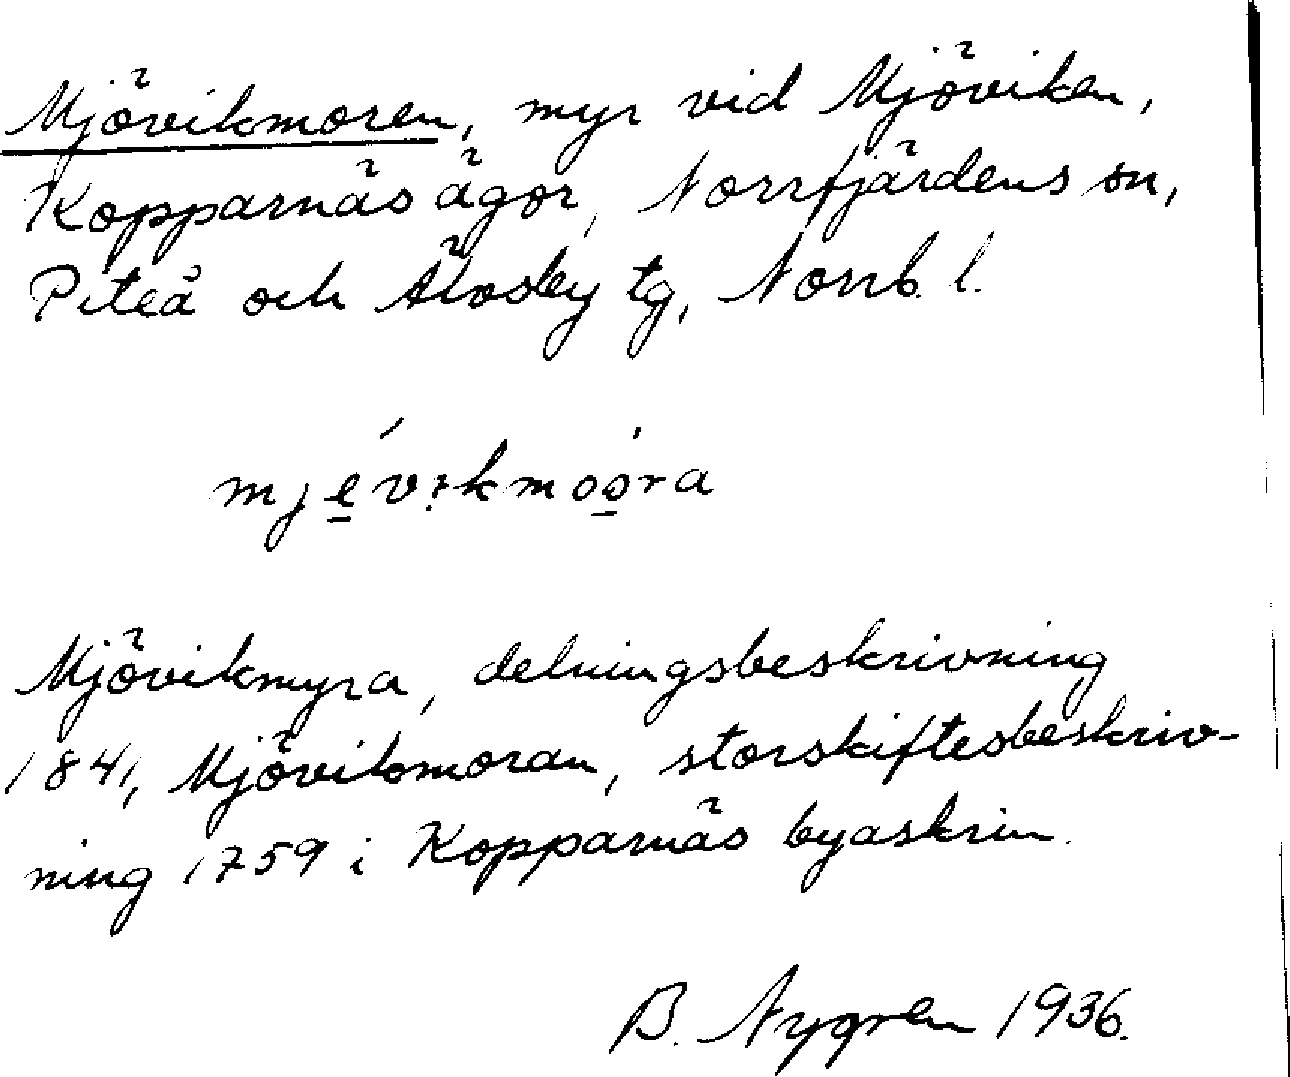 Mjövikmoren, myr vid Mjöviken,
Kopparnäs ägor, Norrfjärdens sn,
Piteå och Älvsby tg, Norrb. l.
Mjövikmyra, delningsbeskrivning
1841, Mjövikmoran, storskiftesbeskriv-
ning 1759 i Kopparnäs byaskrin.
B. Nygren 1936.